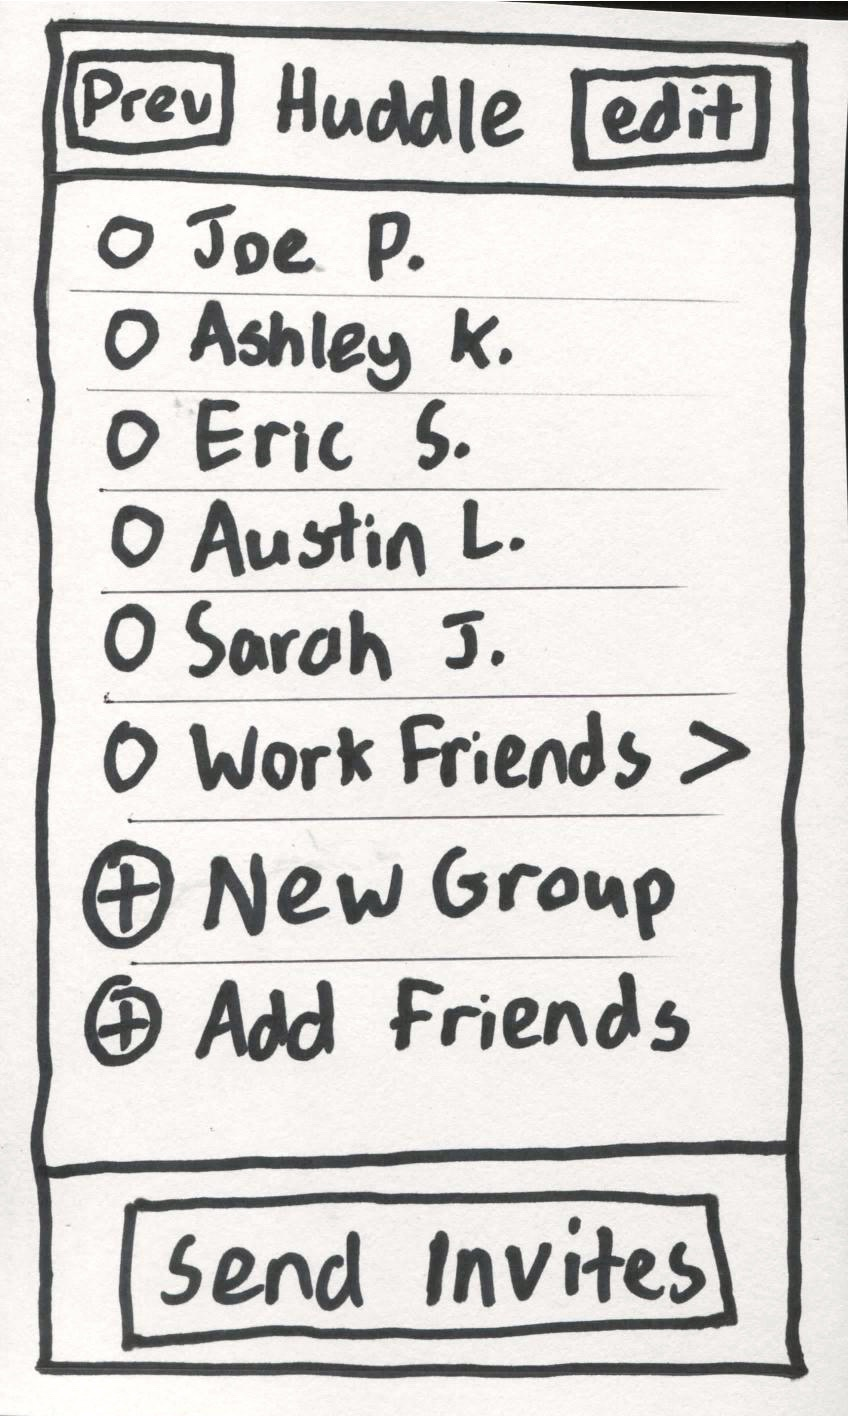 Prev Huddle edit
Joe P.
Ashley K.
Eric S.
Austin L.
Sarah J.
Work Friends >
New Group
Add Friends
Send Invites